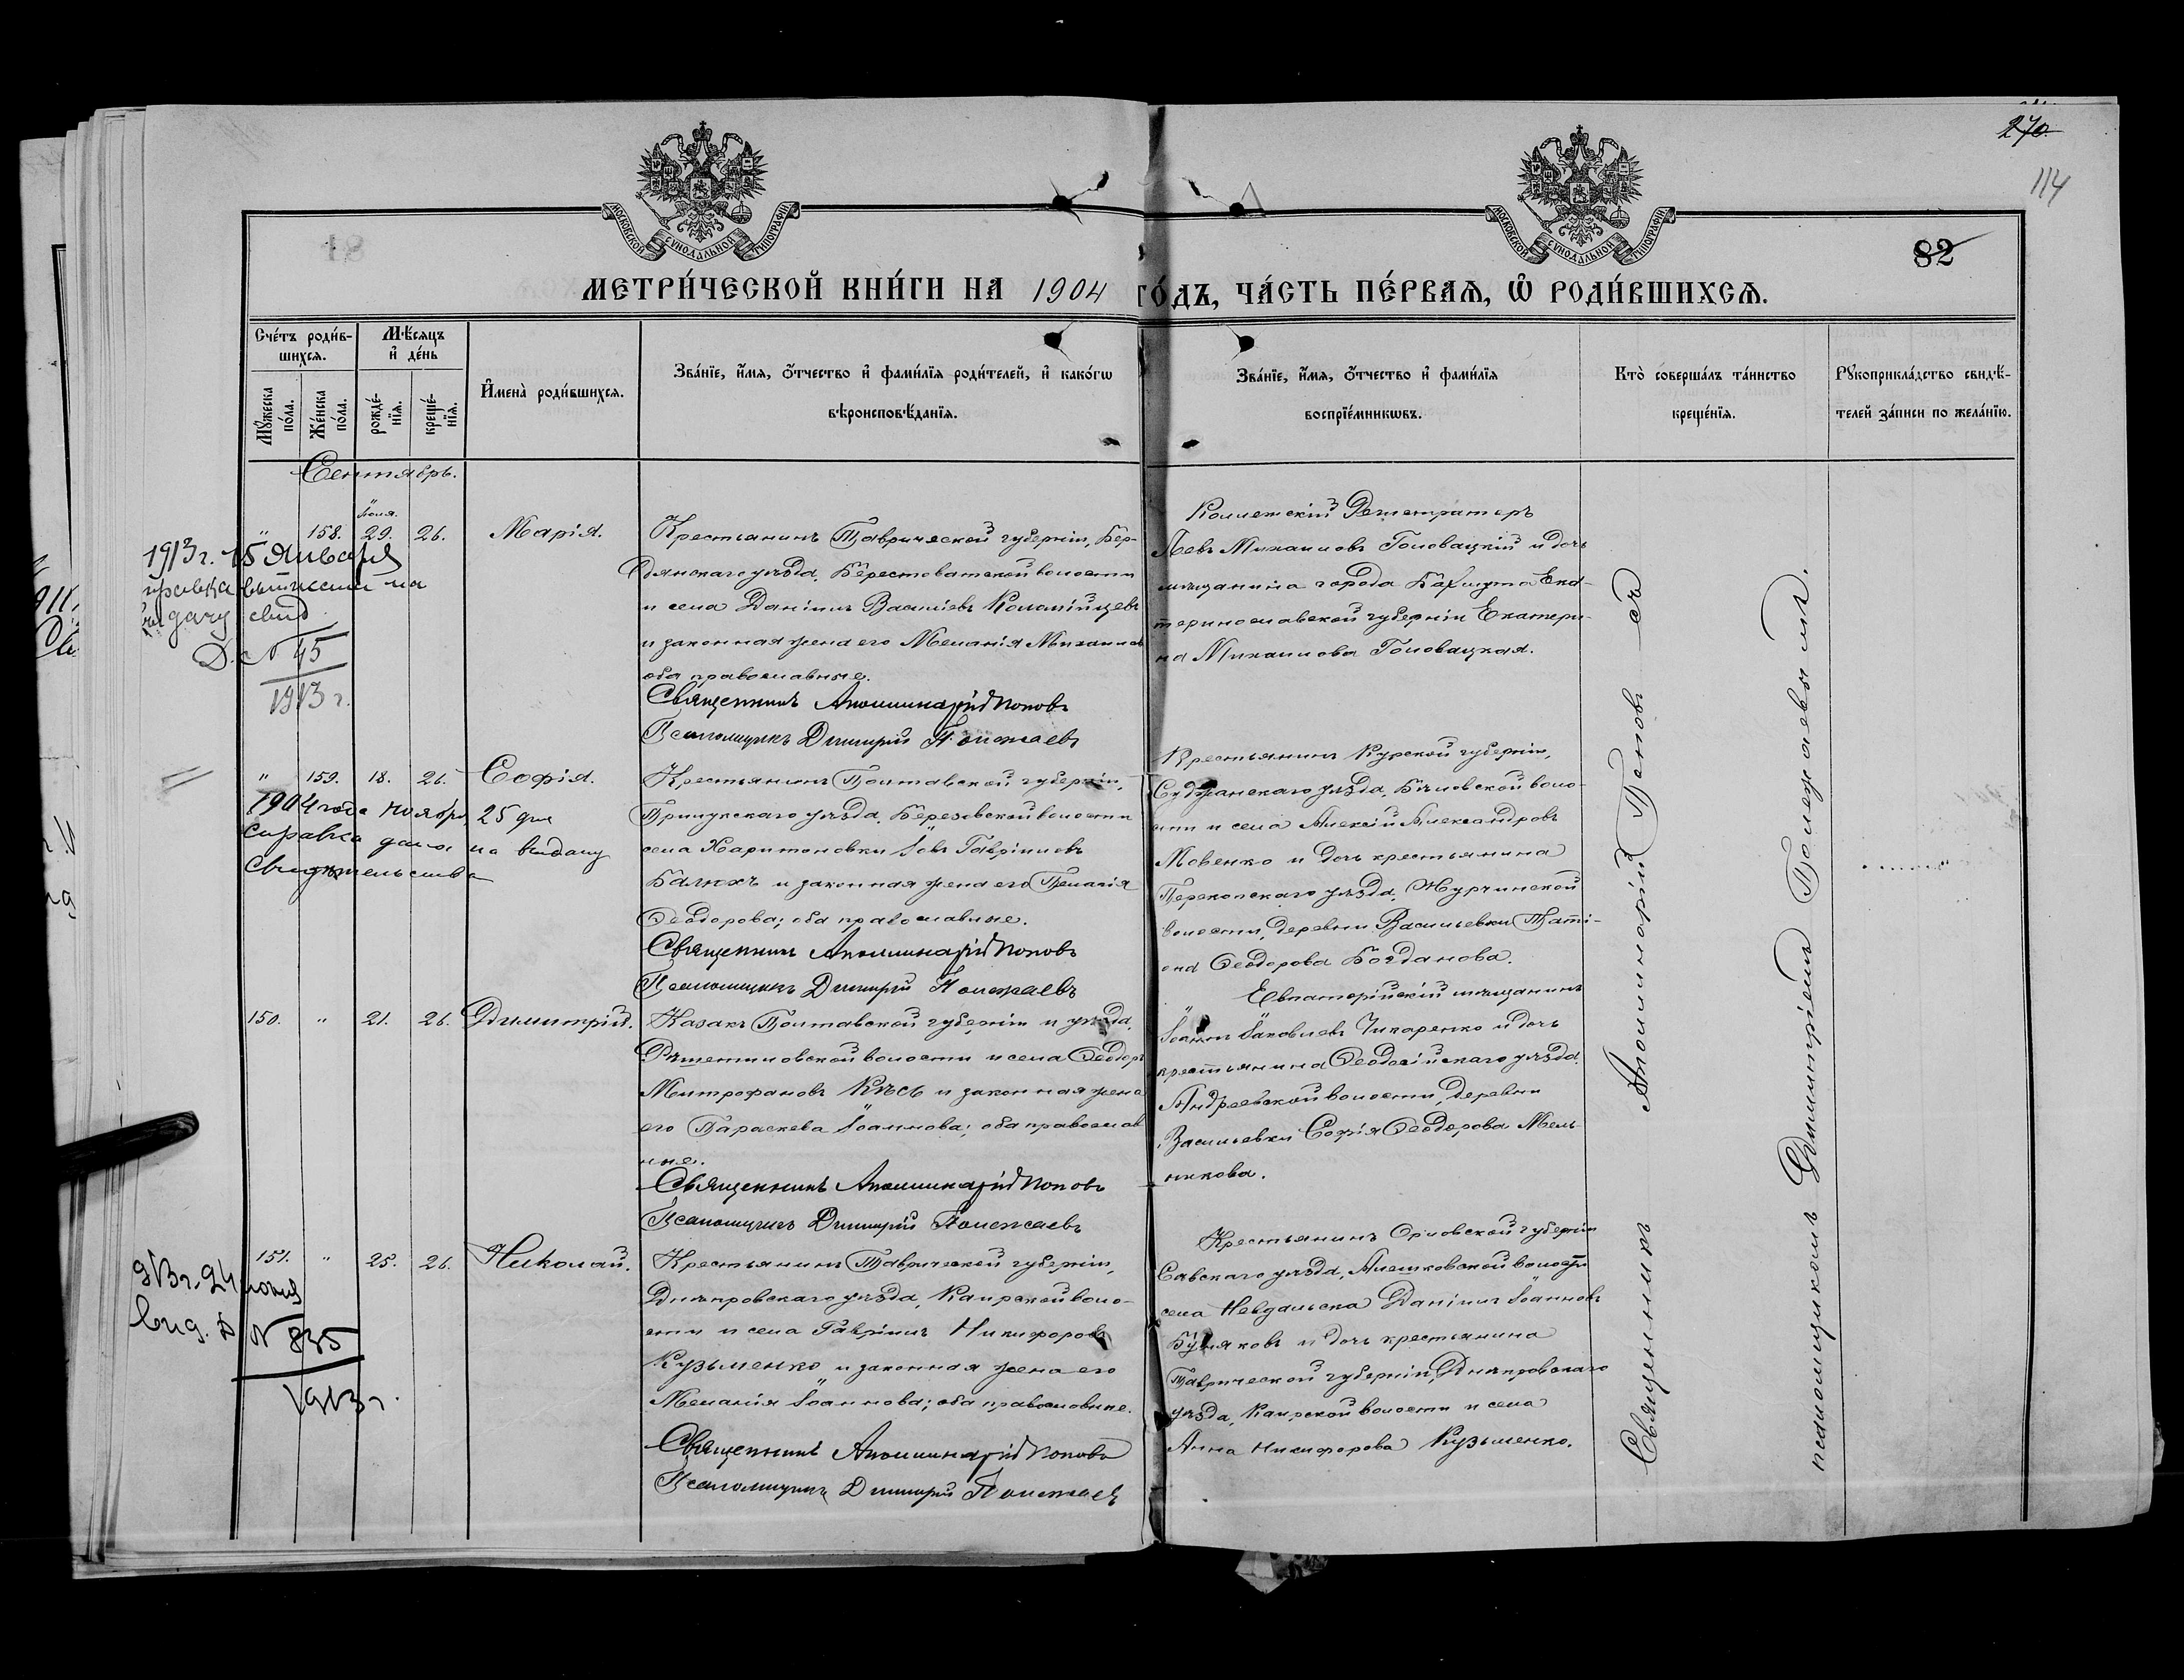 270
114
82
МОСКОВСКОЙ СУНОДАЛЬНОЙ ТИПОГРАФІИ
МОСКОВСКОЙ СУНОДАЛЬНОЙ ТИПОГРАФІИ
МЕТРИ́ЧЕСКОЙ КНИ́ГИ НА 1904 ГО́ДЪ, ЧА́СТЬ ПЕ́РВАЯ, Ѡ РОДИ́ВШИХСЯ.
Сче́тъ роди́в-
шихся.
Мѣ́сяцъ
и҆ де́нь
Му́жеска по́ла.
Же́нска по́ла.
рожде́-
нїя.
креще́-
нїя.
И҆мена̀ роди́вшихся.
Зва́нїе, и҆́мя, ѻ҆́тчество и҆ фами́лїя роди́телей, и҆ како́гѡ
вѣроисповѣ́данїя.
Зва́нїе, и҆́мя, ѻ҆́тчество и҆ фами́лїя
воспрїе́мникѡвъ.
Кто̀ соверша́лъ та́инство
креще́нїя.
Рꙋкоприкла́дство свидѣ́-
телей за́писи по жела́нїю.
Сентябрь.
" 158. Іюля. 29. 26. Марія.
Крестьянинъ Таврической губерніи, Бер-
дянскаго уѣзда, Берестоватской волости
и села Даніилъ Василіевъ Коломійцевъ
и законная жена его Меланія Михаилов
оба православные.
Священникъ Аполлинарій Поповъ
Псаломщикъ Димитрій Полежаевъ
Коллежскій Регистраторъ
Левъ Михаиловъ Головацкій и дочь
мѣщанина города Бахмута Ека-
теринославской губерніи Екатери-
на Михаилова Головацкая.
1913 г. 15 Января
справка выписки на
выдачу свид
Д. N 45
1913 г.
" 159. 18. 26. Софія.
Крестьянинъ Полтавской губерніи,
Прилукскаго уѣзда, Березовской волости
села Харитоновки Іовъ Гавріиловъ
Балюхъ и законная жена его Пелагія
Ѳеодорова; оба православные.
Священникъ Аполлинарій Поповъ
Псаломщикъ Димитрій Полежаевъ
Крестьянинъ Курской губерніи,
Суджанскаго уѣзда, Бѣловской воло-
сти и села Алексій Александровъ
Мовенко и дочь крестьянина
Перекопскаго уѣзда, Журчинской
волости, деревни Васильевки Тати-
ана Ѳеодорова Богданова.
1904 года ноября 25 дня
Справка дана на выдачу
Свидѣтельства
150. " 21. 26. Димитрій.
Казакъ Полтавской губерніи и уѣзда,
Рѣшетиловской волости и села Ѳеодоръ
Митрофановъ Кѣсь и законная жена
его Параскева Іоаннова; оба православ
ные.
Священникъ Аполлинарій Поповъ
Псаломщикъ Димитрій Полежаевъ
Евпаторійскій мѣщанинъ
Іоаннъ Іаковлевъ Чикаренко и дочь
крестьянина Ѳеодосійскаго уѣзда,
Андреевской волости, деревни
Васильевки Софія Ѳеодорова Мель-
никова.
151. " 25. 26. Николай.
Крестьянинъ Таврической губерніи,
Днѣпровскаго уѣзда, Каирской воло-
сти и села Гавріилъ Никифоровъ
Кузьменко и законная жена его
Меланія Іоаннова; оба православные.
Священникъ Аполлинарій Поповъ
Псаломщикъ Димитрій Полежаевъ
Крестьянинъ Орловской губерніи
Севскаго уѣзда, Алешковской волости
села Невдальска Даніилъ Іоанновъ
и дочь крестьянина
Таврической губерніи, Днѣпровскаго
уѣзда, Каирской волости и села
Анна Никифорова Кузьменко.
913 г. 24 іюня
выд. N 835
1913 г.
Священникъ Аполлинарій Поповъ съ
псаломщикомъ Димитріемъ Полежаевымъ.